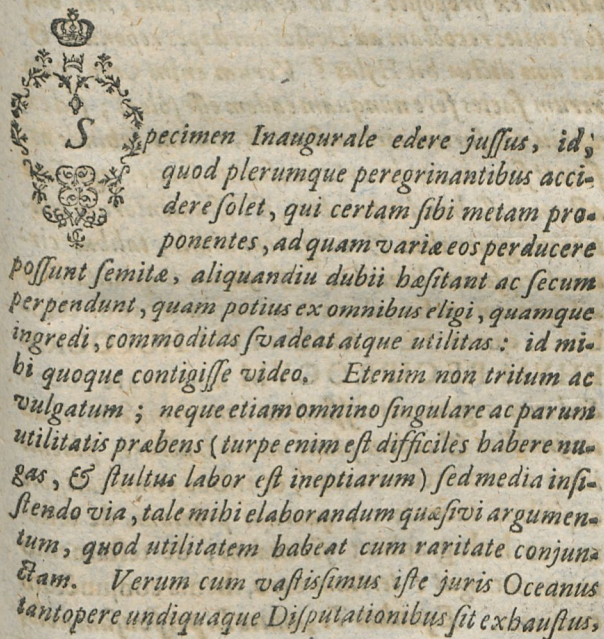 Specimen Inaugurale edere jussus, id,
quod plerumque peregrinantibus acci-
dere solet, qui certam sibi metam pro-
ponentes, ad quam variæ eos perducere
possunt semitæ, aliquandiu dubii hæsitant ac secum
perpendunt, quam potius ex omnibus eligi, quamque
ingredi, commoditas svadeat atque utilitas: id mi-
hi quoque contigisse video. Etenim non tritum ac
vulgatum; neque etiam omnino singulare ac parum
utilitatis præbens (turpe enim est difficiles habere nu-
gas, & stultus labor est ineptiarum) sed media insi-
stendo via, tale mihi elaborandum quæsivi argumen-
tum, quod utilitatem habeat cum raritate conjun-
ctam. Verum cum vastissimus iste juris Oceanus
tantopere undiquaque Disputationibus sit exhaustus,